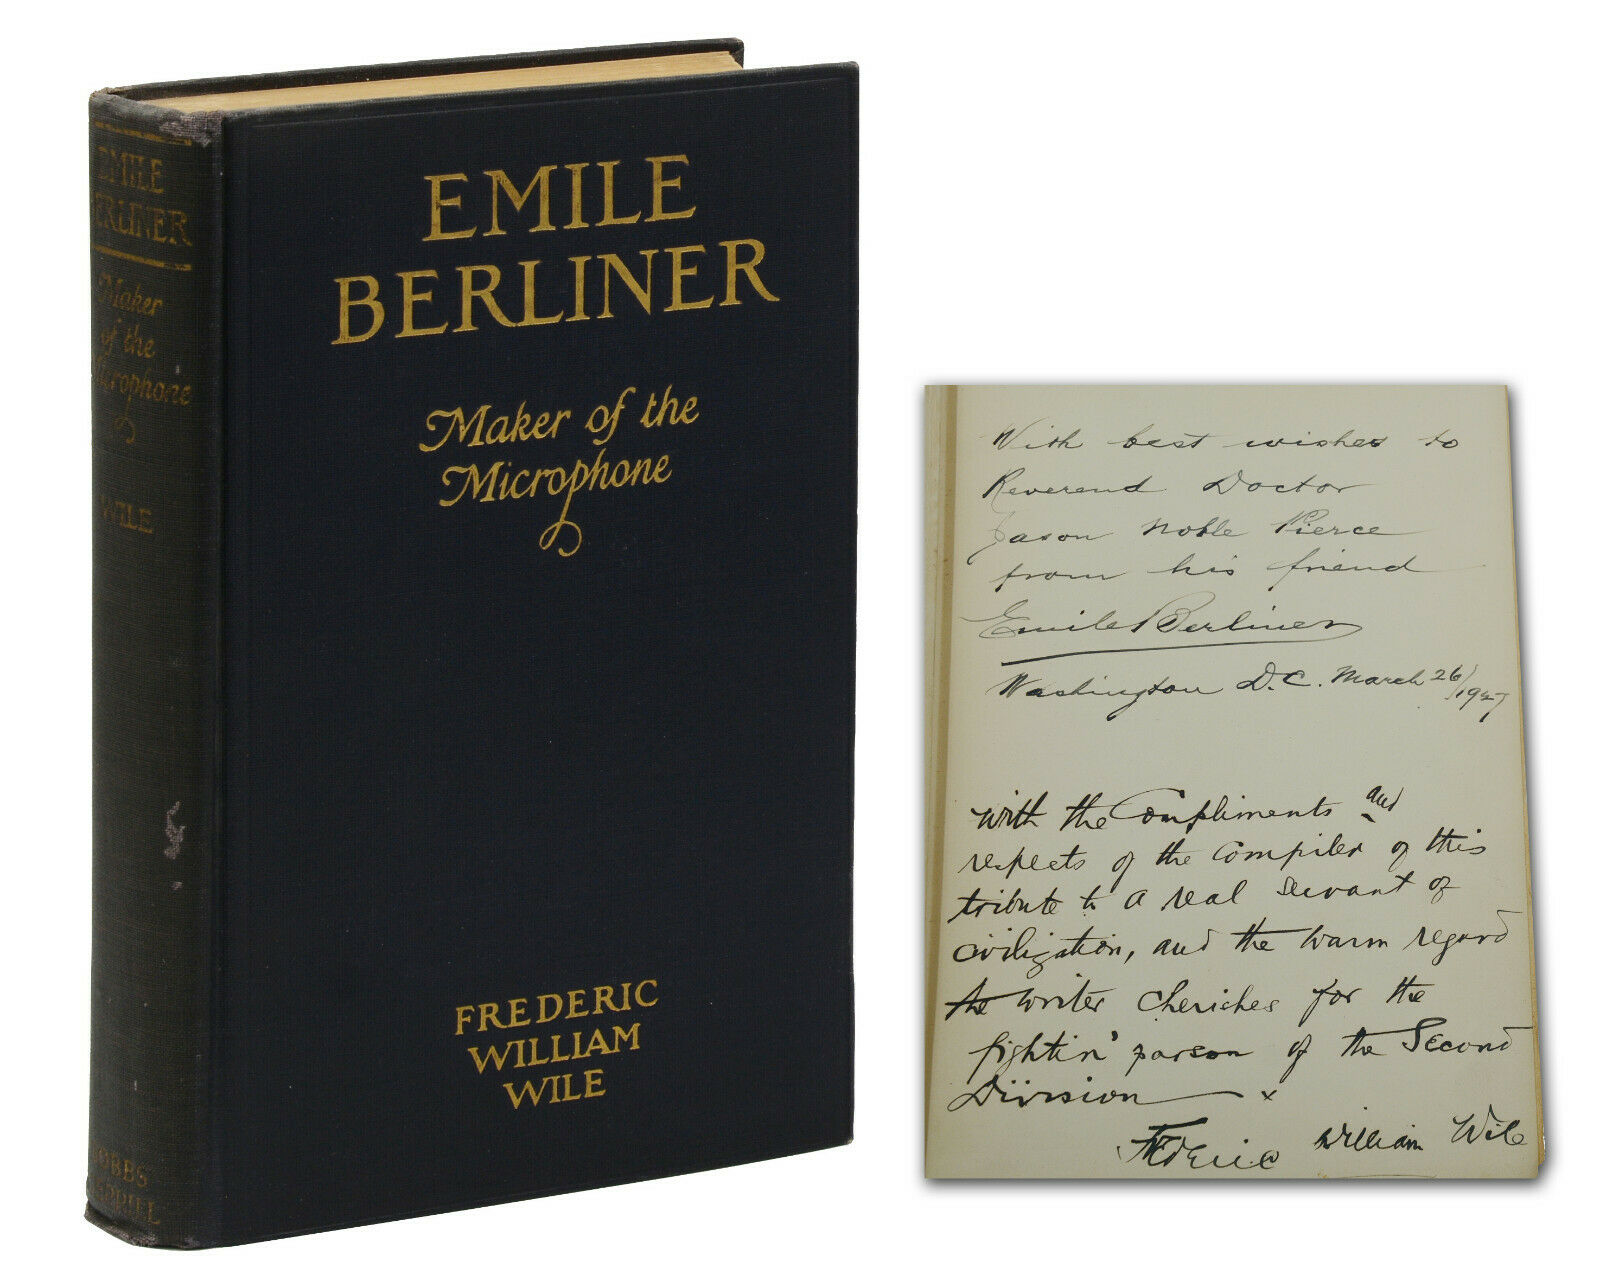 EMILE
BERLINER
Maker
of the
Microphone
WILE
BOBBS
MERRILL
EMILE
BERLINER
Maker of the
Microphone
FREDERIC
WILLIAM
WILE
With best wishes to
Reverend Doctor
Jason Noble Pierce
from his friend
Emile Berliner
Washington D.C. March 26/1927
With the Compliments and
respects of the Compiler of this
tribute to a real servant of
civilization, and the warm regard
the writer cherishes for the
fightin' parson of the Second
Division — x
Frederic William Wile